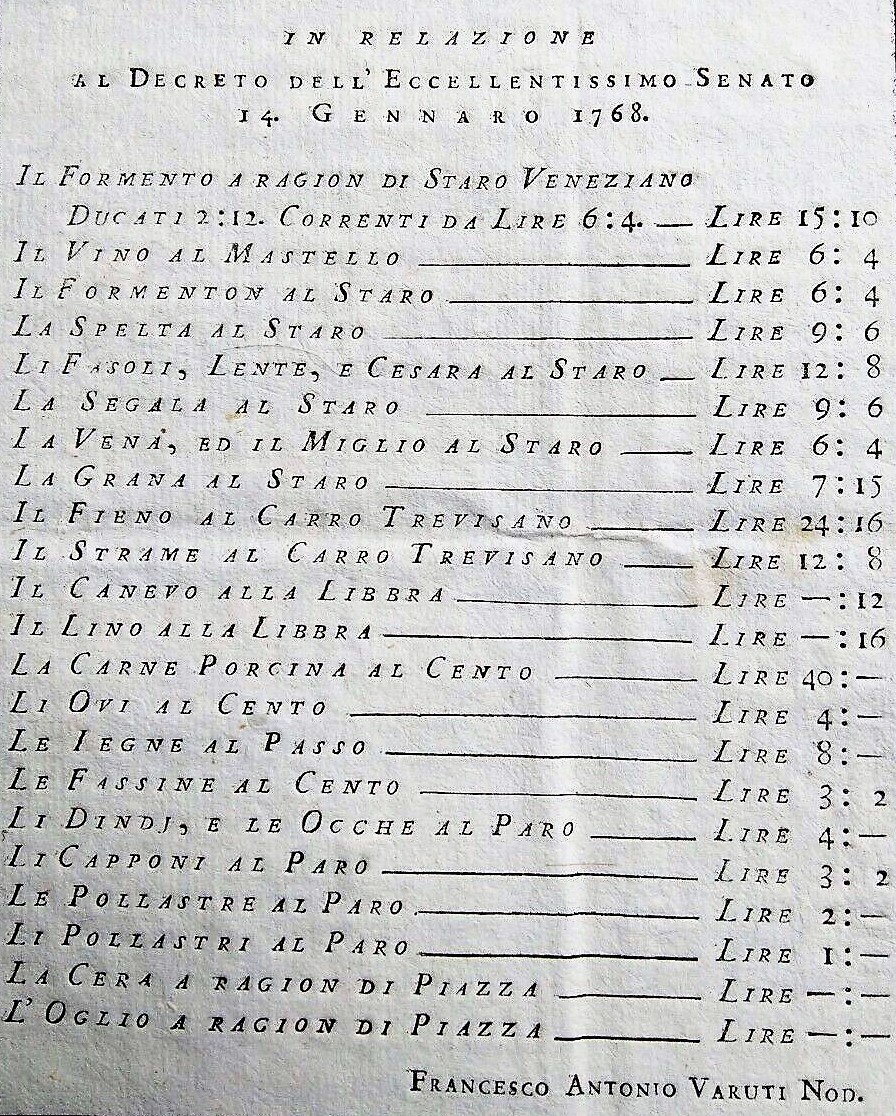 IN RELAZIONE
AL DECRETO DELL' ECCELLENTISSIMO SENATO
14. GENNARO 1768.
IL FORMENTO A RAGION DI STARO VENEZIANO
DUCATI 2:12. CORRENTI DA LIRE 6:4. — LIRE 15:10
IL VINO AL MASTELLO — LIRE 6: 4
IL FORMENTON AL STARO — LIRE 6: 4
LA SPELTA AL STARO — LIRE 9: 6
LI FASOLI, LENTE, E CESARA AL STARO — LIRE 12: 8
LA SEGALA AL STARO — LIRE 9: 6
LA VENA, ED IL MIGLIO AL STARO — LIRE 6: 4
LA GRANA AL STARO — LIRE 7:15
IL FIENO AL CARRO TREVISANO — LIRE 24:16
IL STRAME AL CARRO TREVISANO — LIRE 12: 8
IL CANEVO ALLA LIBBRA — LIRE —:12
IL LINO ALLA LIBBRA — LIRE —:16
LA CARNE PORCINA AL CENTO — LIRE 40:—
LI OVI AL CENTO — LIRE 4:—
LE IEGNE AL PASSO — LIRE 8:—
LE FASSINE AL CENTO — LIRE 3: 2
LI DINDJ, E LE OCCHE AL PARO — LIRE 4:—
LI CAPPONI AL PARO — LIRE 3: 2
LE POLLASTRE AL PARO — LIRE 2:—
LI POLLASTRI AL PARO — LIRE 1:—
LA CERA A RAGION DI PIAZZA — LIRE —:—
L' OGLIO A RAGION DI PIAZZA — LIRE —:—
FRANCESCO ANTONIO VARUTI NOD.